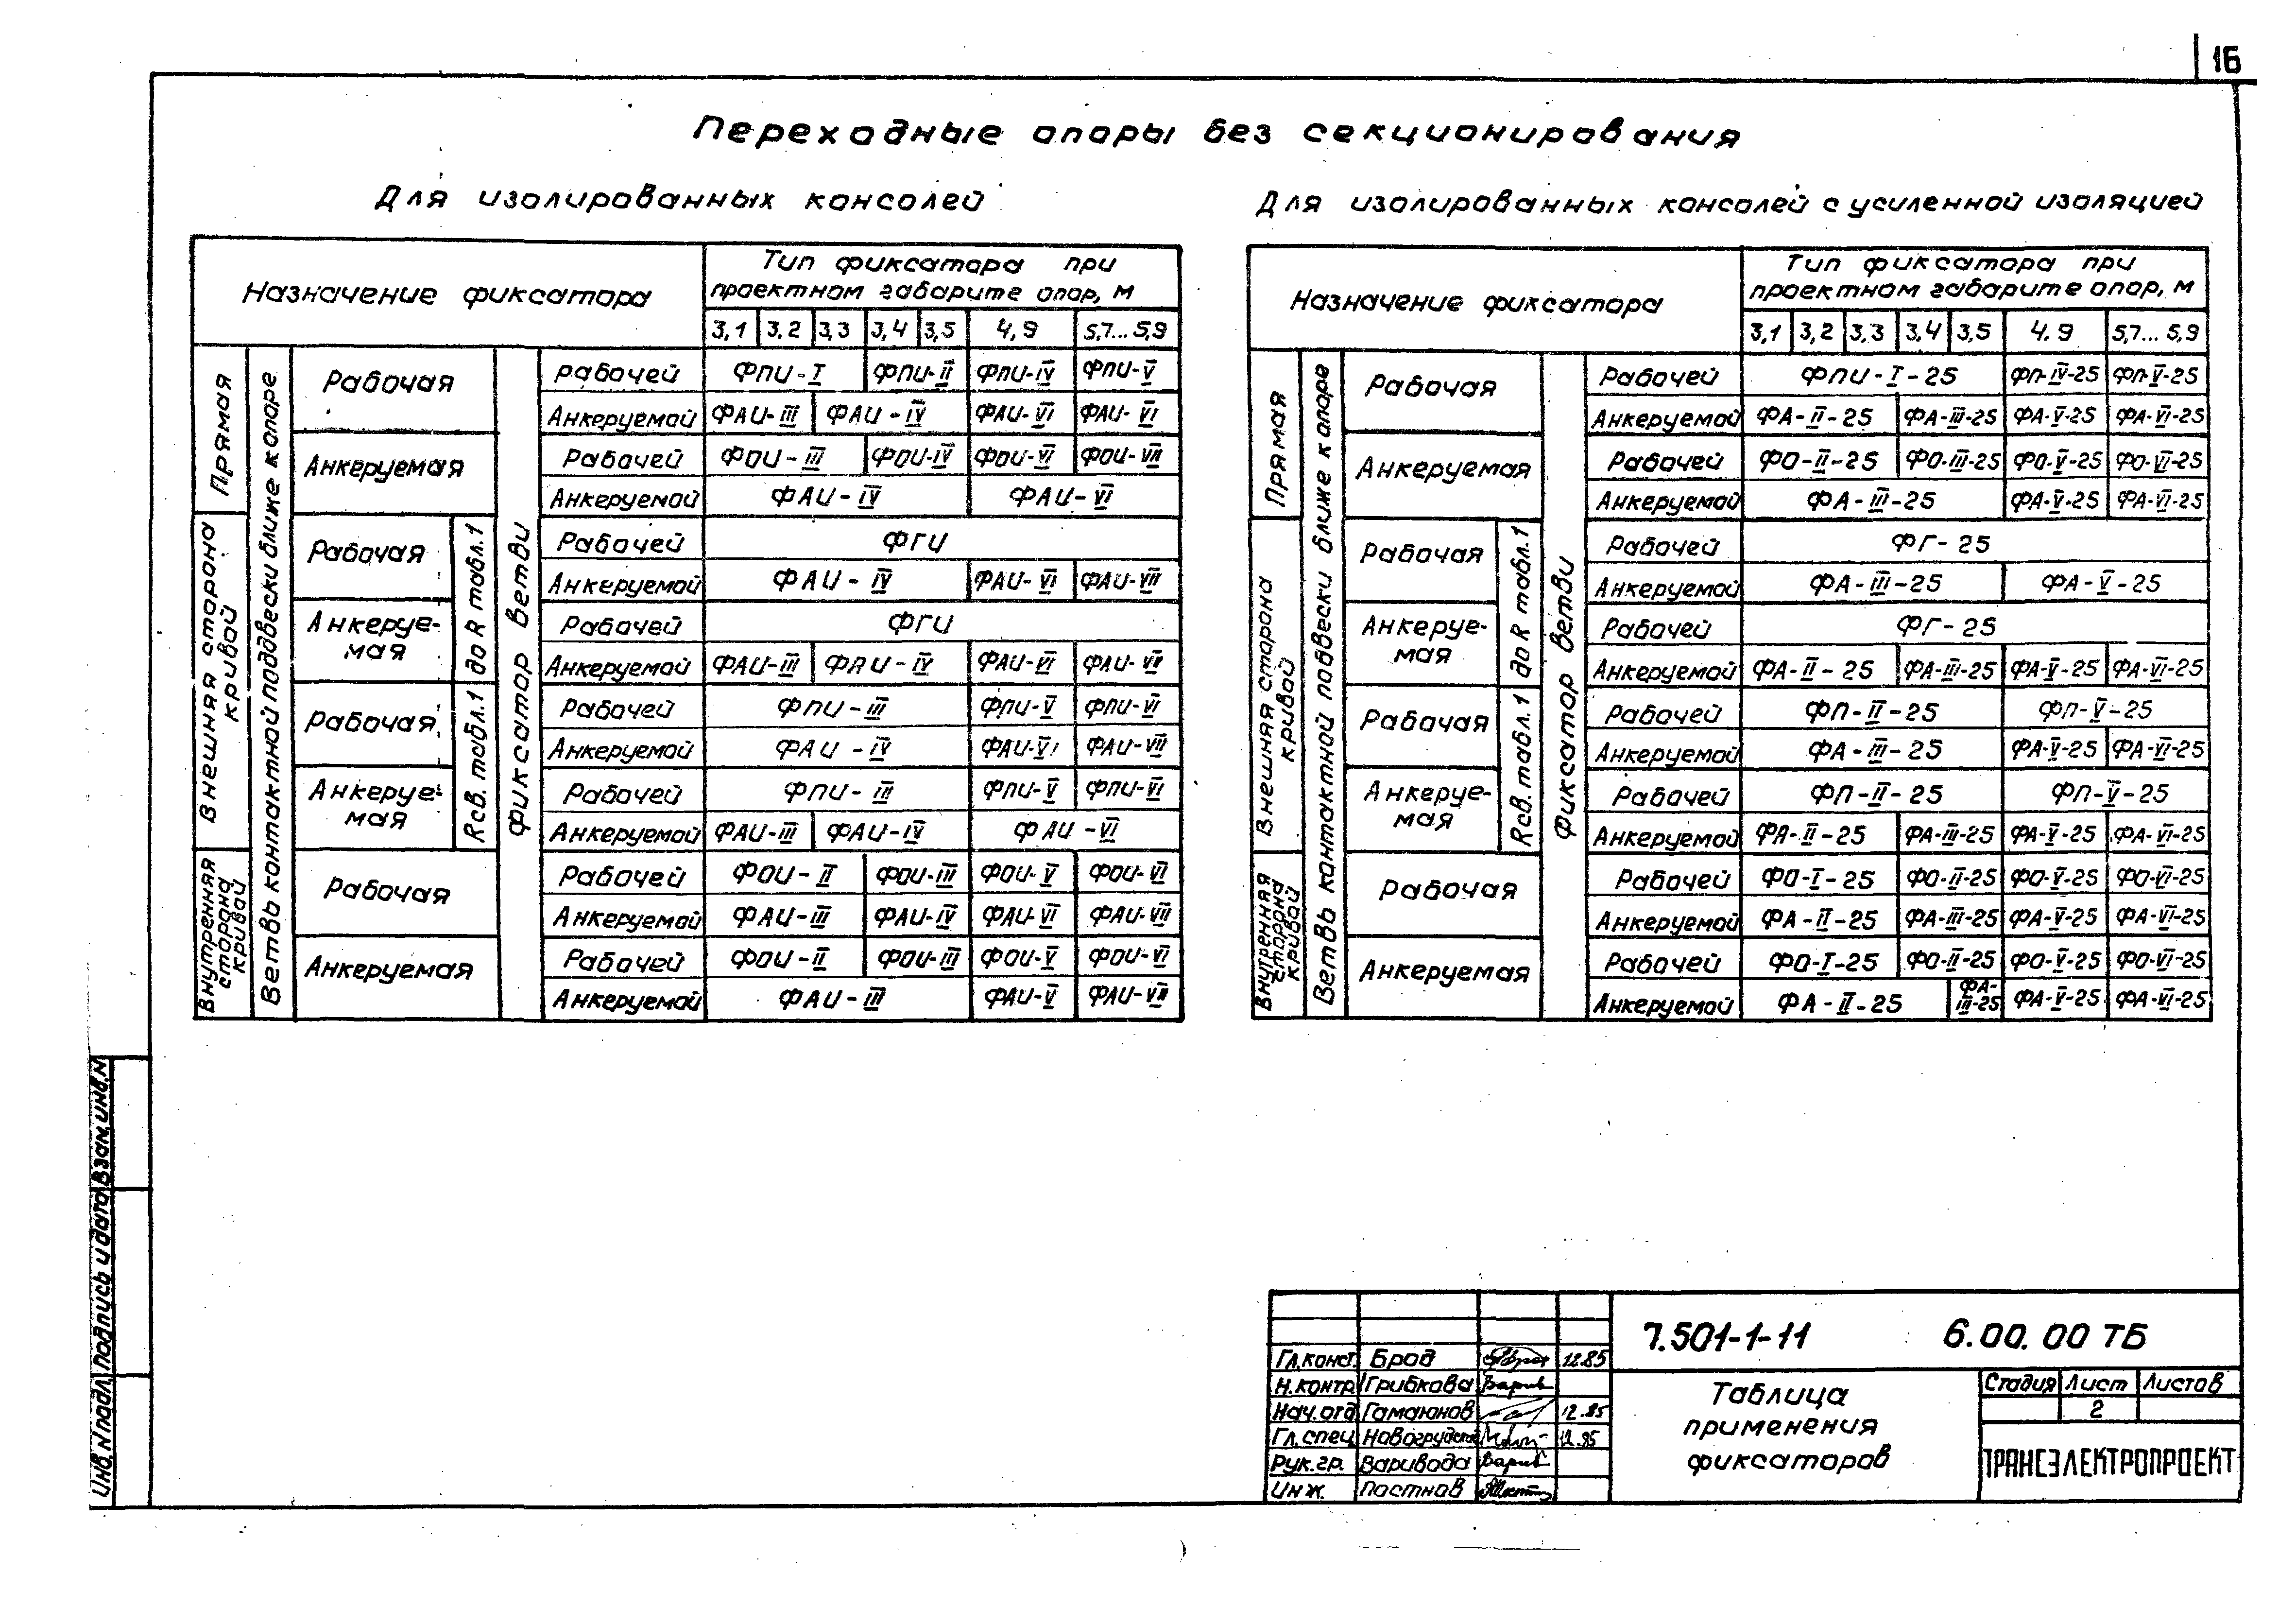 16
Переходные опоры без секционирования
Для изолированных консолей
Назначение фиксатора
Тип фиксатора при
проектном габарите опор, м
3,1 3,2 3,3 3,4 3,5 4,9 5,7...5,9
Прямая
Внешняя сторона
кривой
Внутренняя
сторона
кривой
Ветвь контактной подвески ближе к опоре
до R табл.1
Rсв. табл.1
Фиксатор ветви
Рабочая
Рабочей ФПИ-I ФПИ-II ФПИ-IV ФПИ-V
Анкеруемой ФАИ-III ФАИ-IV ФАИ-VI ФАИ-VI
Анкеруемая
Рабочей ФОИ-III ФОИ-IV ФОИ-VI ФОИ-VII
Анкеруемой ФАИ-IV ФАИ-VI
Рабочая
Рабочей ФГИ
Анкеруемой ФАИ-IV ФАИ-VI ФАИ-VII
Анкеруе-
мая
Рабочей ФГИ
Анкеруемой ФАИ-III ФАИ-IV ФАИ-VI
Рабочая
Рабочей ФПИ-III ФПИ-V ФПИ-VI
Анкеруемой ФАИ-IV ФАИ-VI ФАИ-VII
Анкеруе-
мая
Рабочей ФПИ-III ФПИ-V ФПИ-VI
Анкеруемой ФАИ-III ФАИ-IV ФАИ-VI
Рабочая
Рабочей ФОИ-II ФОИ-III ФОИ-V ФОИ-VI
Анкеруемой ФАИ-III ФАИ-IV ФАИ-VI ФАИ-VII
Анкеруемая
Рабочей ФОИ-II ФОИ-III ФОИ-V ФОИ-VI
Анкеруемой ФАИ-III ФАИ-V ФАИ-VII
Для изолированных консолей с усиленной изоляцией
Назначение фиксатора
Тип фиксатора при
проектном габарите опор, м
3,1 3,2 3,3 3,4 3,5 4.9 5,7...5,9
Прямая
Внешняя сторона
кривой
Внутренняя
сторона
кривой
Ветвь контактной подвески ближе к опоре
до R табл.1
Rсв. табл.1
Фиксатор ветви
Рабочая
Рабочей ФПИ-I-25 ФП-IV-25 ФП-V-25
Анкеруемой ФА-II-25 ФА-III-25 ФА-V-25 ФА-VI-25
Анкеруемая
Рабочей ФО-II-25 ФО-III-25 ФО-V-25 ФО-VI-25
Анкеруемой ФА-III-25 ФА-V-25 ФА-VI-25
Рабочая
Рабочей ФГ-25
Анкеруемой ФА-III-25 ФА-V-25
Анкеруе-
мая
Рабочей ФГ-25
Анкеруемой ФА-II-25 ФА-III-25 ФА-V-25 ФА-VI-25
Рабочая
Рабочей ФП-II-25 ФП-V-25
Анкеруемой ФА-III-25 ФА-V-25 ФА-VI-25
Анкеруе-
мая
Рабочей ФП-II-25 ФП-V-25
Анкеруемой ФА-II-25 ФА-III-25 ФА-V-25 ФА-VI-25
Рабочая
Рабочей ФО-I-25 ФО-II-25 ФО-V-25 ФО-VI-25
Анкеруемой ФА-II-25 ФА-III-25 ФА-V-25 ФА-VI-25
Анкеруемая
Рабочей ФО-I-25 ФО-II-25 ФО-V-25 ФО-VI-25
Анкеруемой ФА-II-25 ФА-III-25 ФА-V-25 ФА-VI-25
Взам.инв.N
Подпись и дата
Инв.N подл.
Гл.конст. Брод 12.85
Н.контр. Грибкова
Нач.отд Гамаюнов 12.85
Гл.спец. 12.85
Рук.гр. Варивода
Инж. Постнов
7.501-1-11 6.00.00 ТБ
Таблица
применения
фиксаторов
Стадия Лист Листов
2
ТРАНСЭЛЕКТРОПРОЕКТ